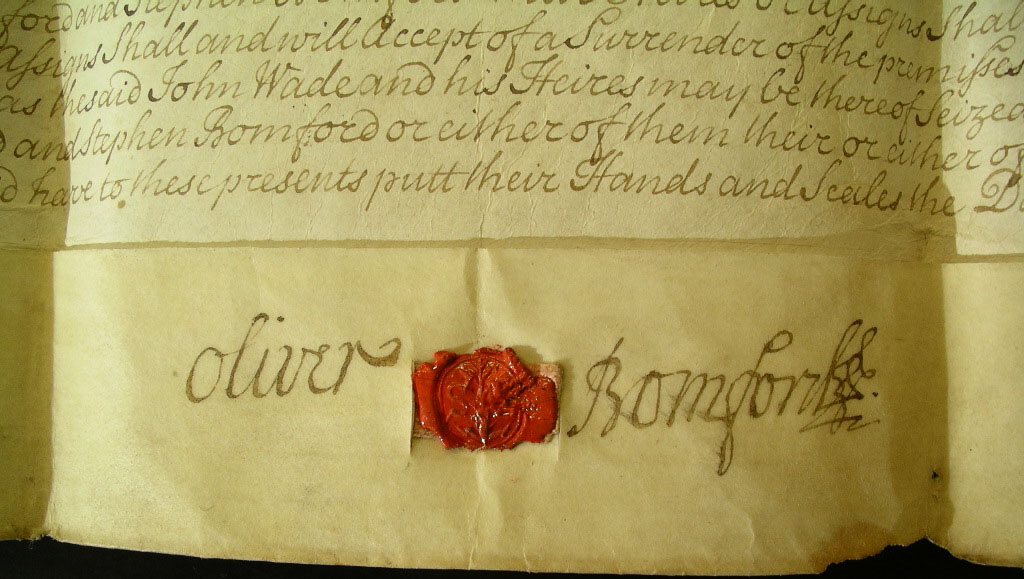 ford and Stephen Bomford Assigns Shall
Assigns Shall and will Accept of a Surrender of the premisses
as thesaid John Wade and his Heires may be thereof Seized
and Stephen Bomford or either of them their or either of
have to these presents putt their Hands and Seales the
Oliver Bomford